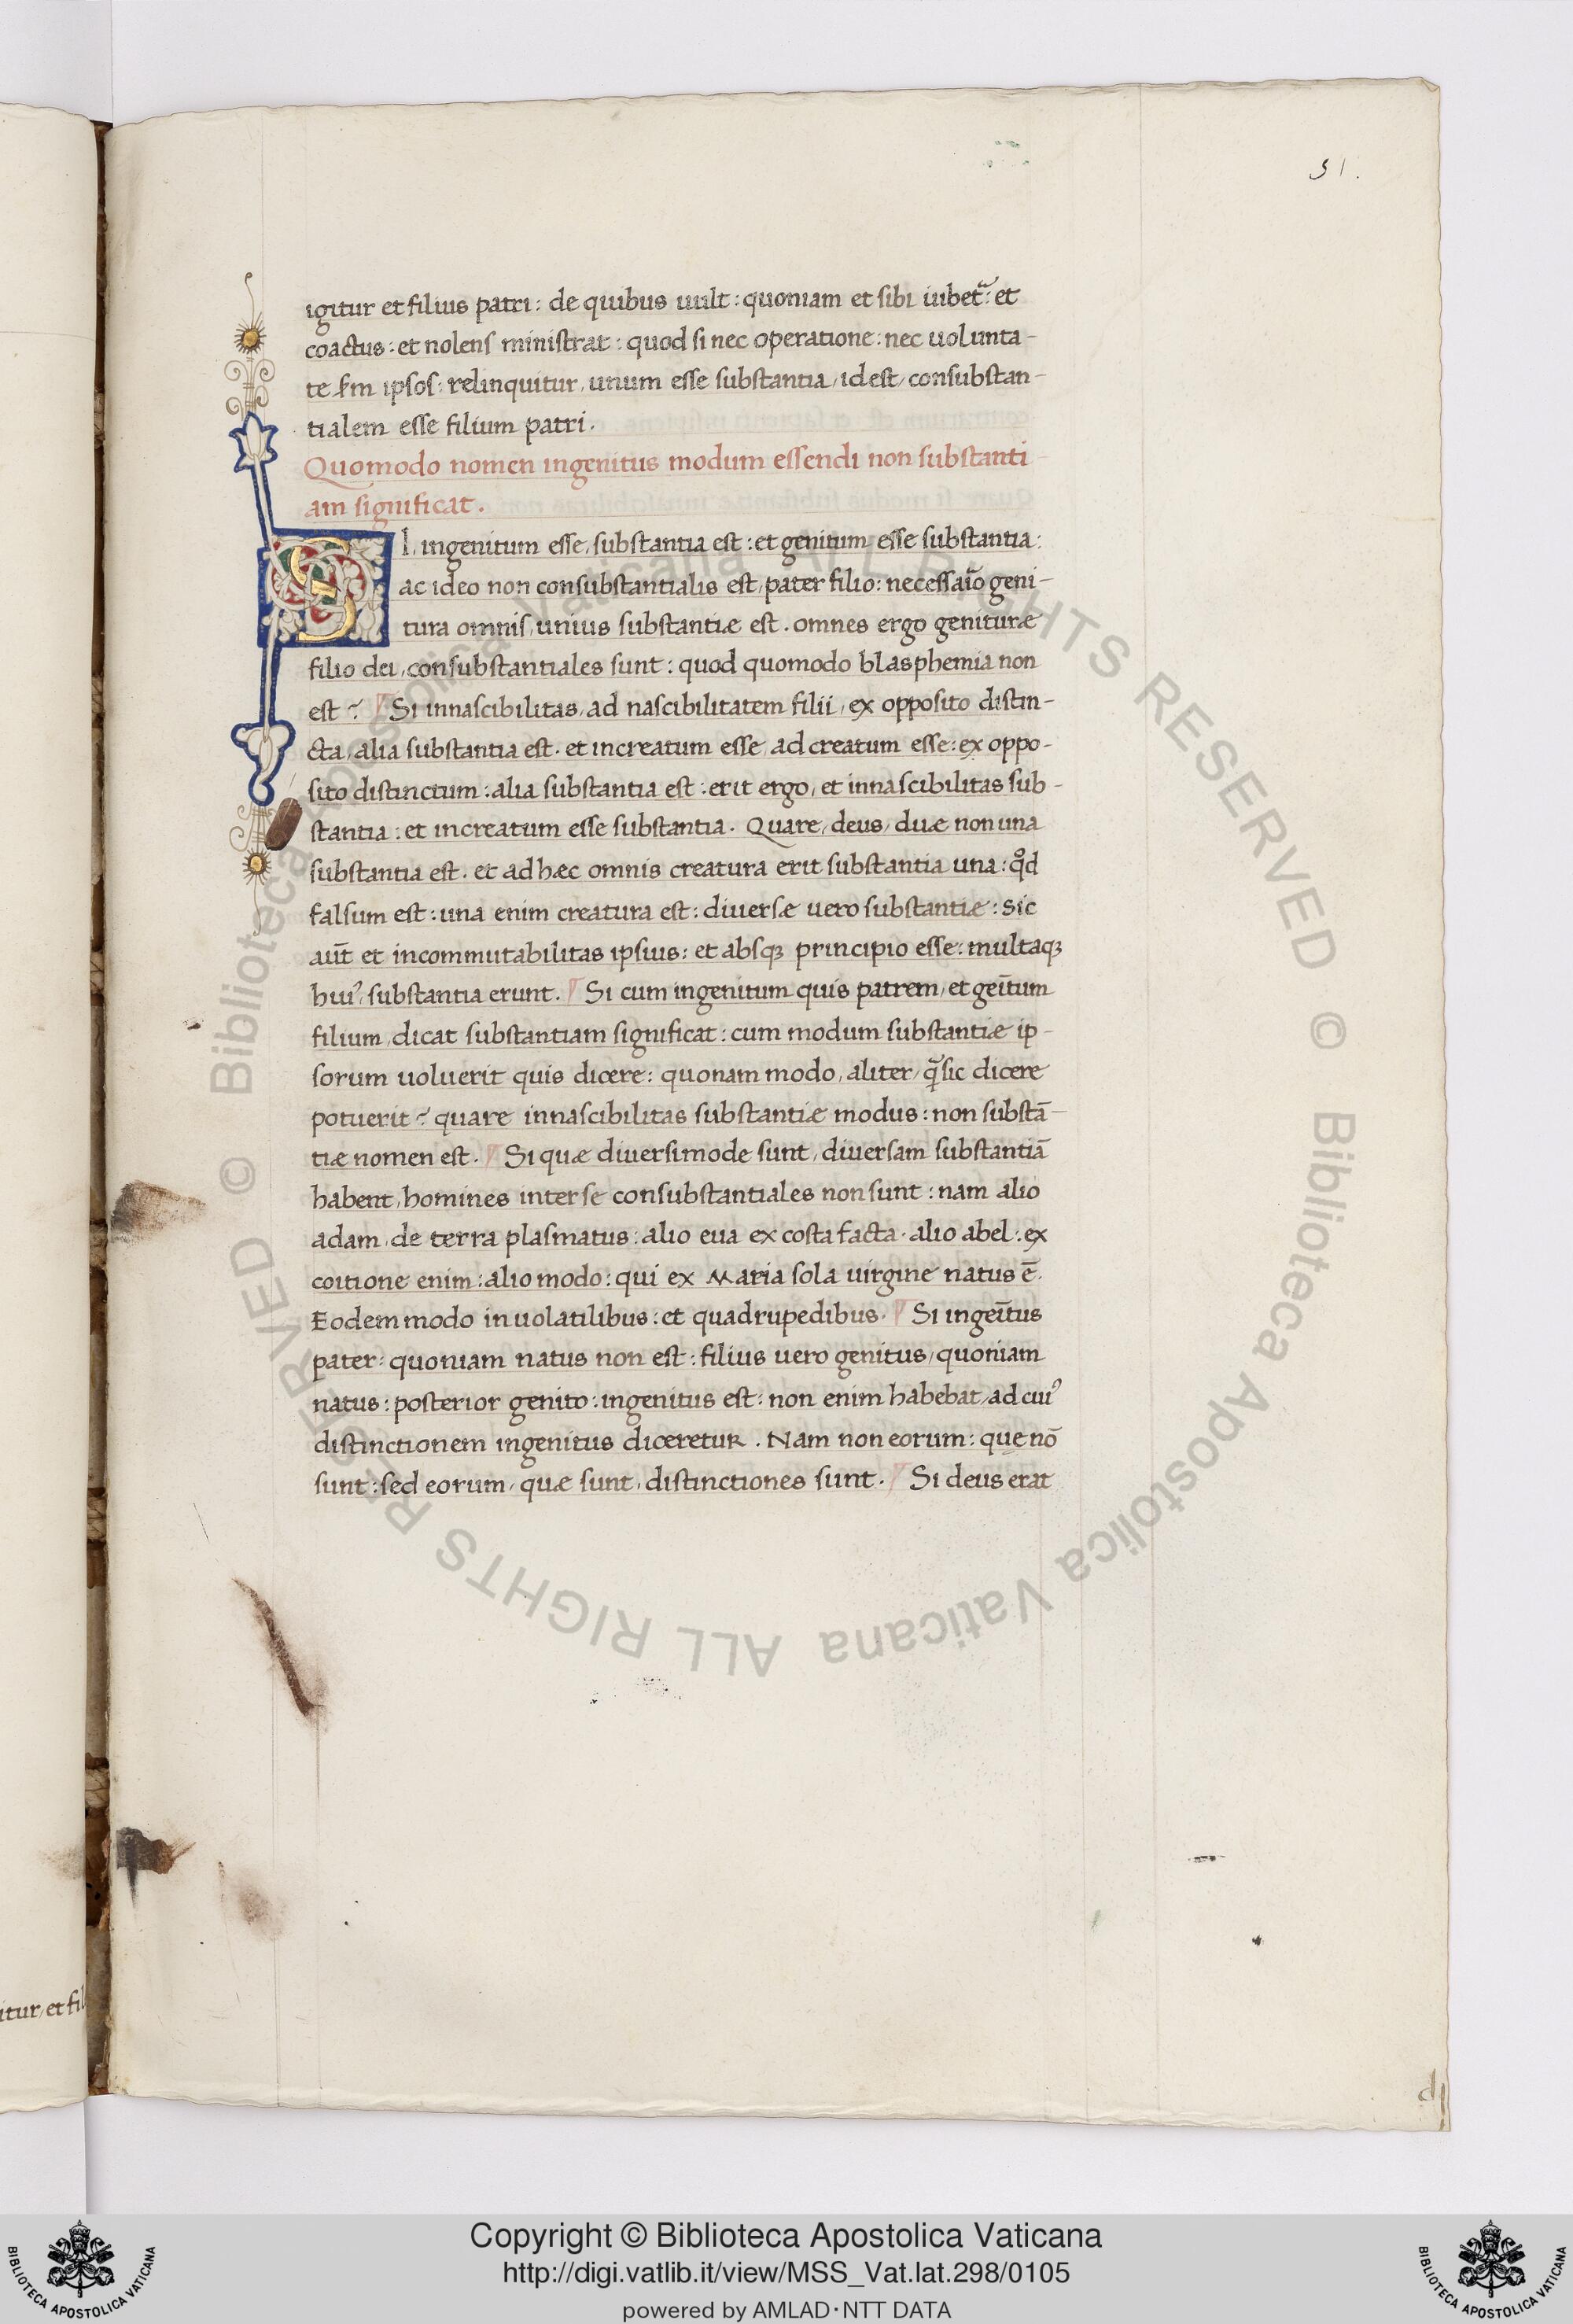 31.
igitur et filius patri: de quibus uult: quoniam et sibi iubet᷑: et
coactus: et nolens ministrat: quod si nec operatione: nec uolunta-
te s̄m ipsos: relinquitur, unum esse substantia, id est, consubstan-
tialem esse filium patri.
Quomodo nomen ingenitus modum essendi non substanti
am significat.
SI, ingenitum esse, substantia est: et genitum esse substantia:
ac ideo non consubstantialis est, pater filio: necessaı̄o geni-
tura omnis, unius substantiæ est. omnes ergo genituræ
filio dei, consubstantiales sunt: quod quomodo blasphemia non
est? ¶ Si innascibilitas, ad nascibilitatem filii, ex opposito distin-
cta, alia substantia est. et increatum esse ad creatum esse: ex oppo-
sito distinctum: alia substantia est: erit ergo, et innascibilitas sub-
stantia: et increatum esse substantia. Quare, deus, duæ non una
substantia est. et ad hæc omnis creatura erit substantia una: qͦd
falsum est: una enim creatura est: diuersæ uero substantiæ: Sic
aūt et incommutabilitas ipsius: et absqꝫ principio esse: multaqꝫ
huiꝰ, substantia erunt. ¶ Si cum ingenitum quis patrem, et geı̄tum
filium, dicat substantiam significat: cum modum substantiæ ip-
sorum uoluerit quis dicere: quonam modo, aliter, q̃ sic dicere
potuerit? quare innascibilitas substantiæ modus: non substā-
tiæ nomen est. ¶ Si quæ diuersimode sunt, diuersam substantiā
habent, homines inter se consubstantiales non sunt: nam alio
adam, de terra plasmatus: alio eua ex costa facta. alio abel: ex
coitione enim: alio modo: qui ex Maria sola uirgine natus ē.
Eodem modo in uolatilibus: et quadrupedibus. ¶ Si ingeı̄tus
pater: quoniam natus non est: filius uero genitus, quoniam
natus: posterior genito: ingenitus est: non enim habebat, ad cuiꝰ
distinctionem ingenitus diceretur. Nam non eorum: quę nō
sunt: sed eorum, quæ sunt, distinctiones sunt. ¶ Si deus erat
itur, et fil
d
© Biblioteca Apostolica Vaticana ALL RIGHTS RESERVED © Biblioteca Apostolica Vaticana ALL RIGHTS RESERVED
Copyright © Biblioteca Apostolica Vaticana
http://digi.vatlib.it/view/MSS_Vat.lat.298/0105
powered by AMLAD·NTT DATA
BIBLIOTECA APOSTOLICA VATICANA
BIBLIOTECA APOSTOLICA VATICANA